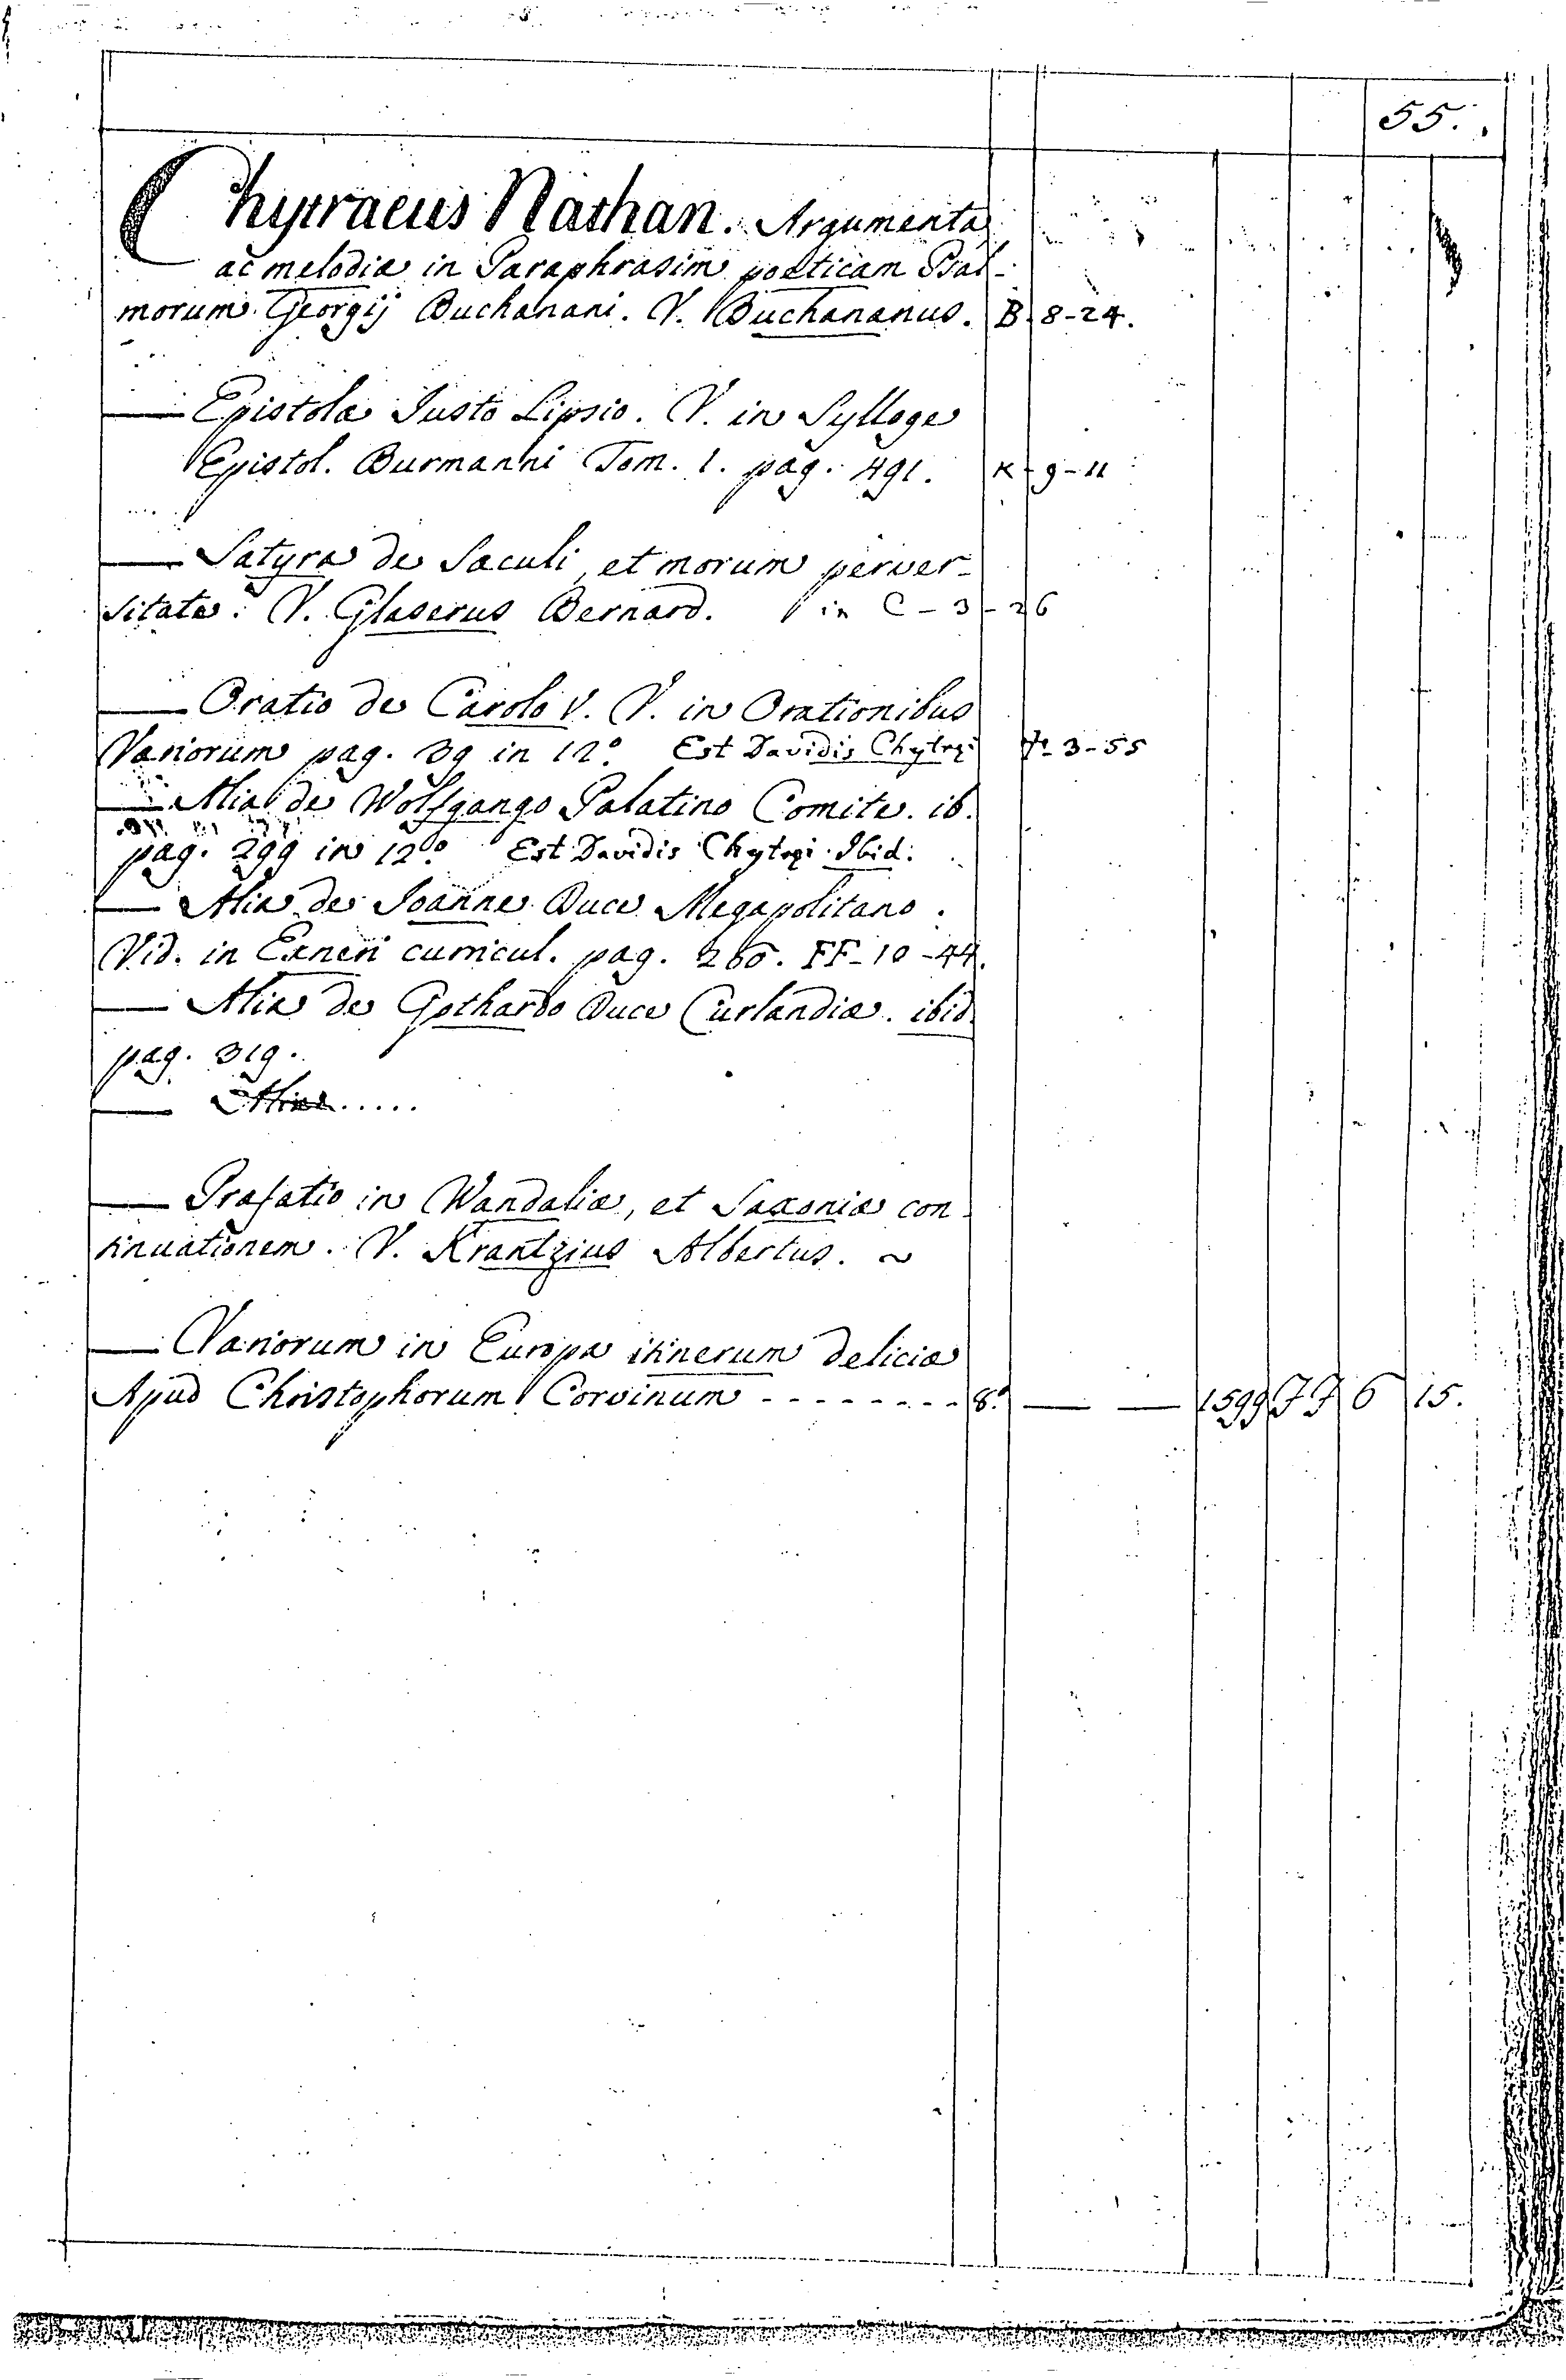 55.
Chytraeus Nathan. Argumenta
ac melodiæ in Paraphrasim poeticam Psal-
morum Georgij Buchanani. V. Buchananus. B 8-24.
— Epistola Justo Lipsio. V. in Sylloge
Epistol. Burmanni Tom. 1. pag. 491. K-9-11
— Satyra de Sæculi, et morum perver-
sitate. V. Glaserus Bernard. in C-3-26
— Oratio de Carolo V. V. in Orationibus
Variorum pag. 39 in 12.° Est Davidis Chytræi 3-55
— Alia de Wolfgango Palatino Comite. ib.
pag. 299 in 12.° Est Davidis Chytræi. Ibid.
— Alia de Joanne Duce Megapolitano.
Vid. in Exneri curricul. pag. 260. FF-10-44.
— Alia de Gothardo Duce Curlandiæ. ibid
pag. 319.
— Alia.....
— Præfatio in Wandaliæ, et Saxoniæ con
tinuationem. V. Krantzius Albertus. ~
— Variorum in Europa itinerum deliciæ
Apud Christophorum Corvinum -------- 8.° — — 1599 JJ 6 15.